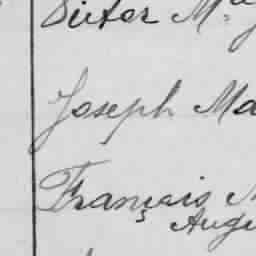 Victor M
Joseph Ma
François
Aug